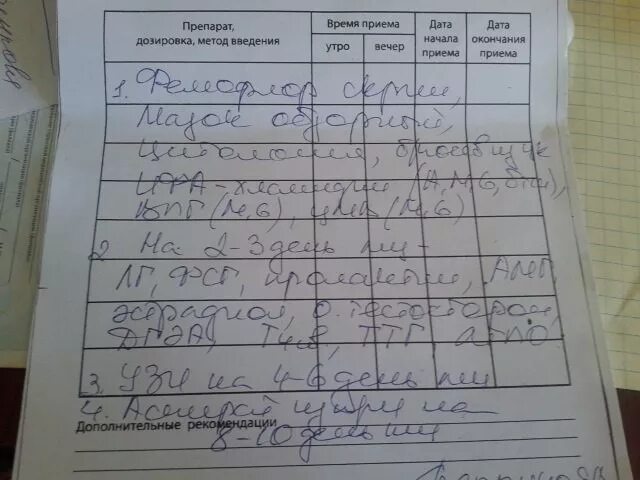 Препарат, дозировка, метод введения
Время приема
утро
вечер
Дата начала приема
Дата окончания приема
1. Фемофлор скрин,
Мазок обзорный,
Цитология,
ИФА - хламидии
ВПГ (М, G), ЦМВ (М, G)
2. На 2-3 день мц -
ЛГ, ФСГ, пролактин, АМГ
эстрадиол, о. тестостерон,
ДГЭА, Т4св, ТТГ, атПО
3. УЗИ на 4-6 день мц
4. на
Дополнительные рекомендации
8-10 день мц